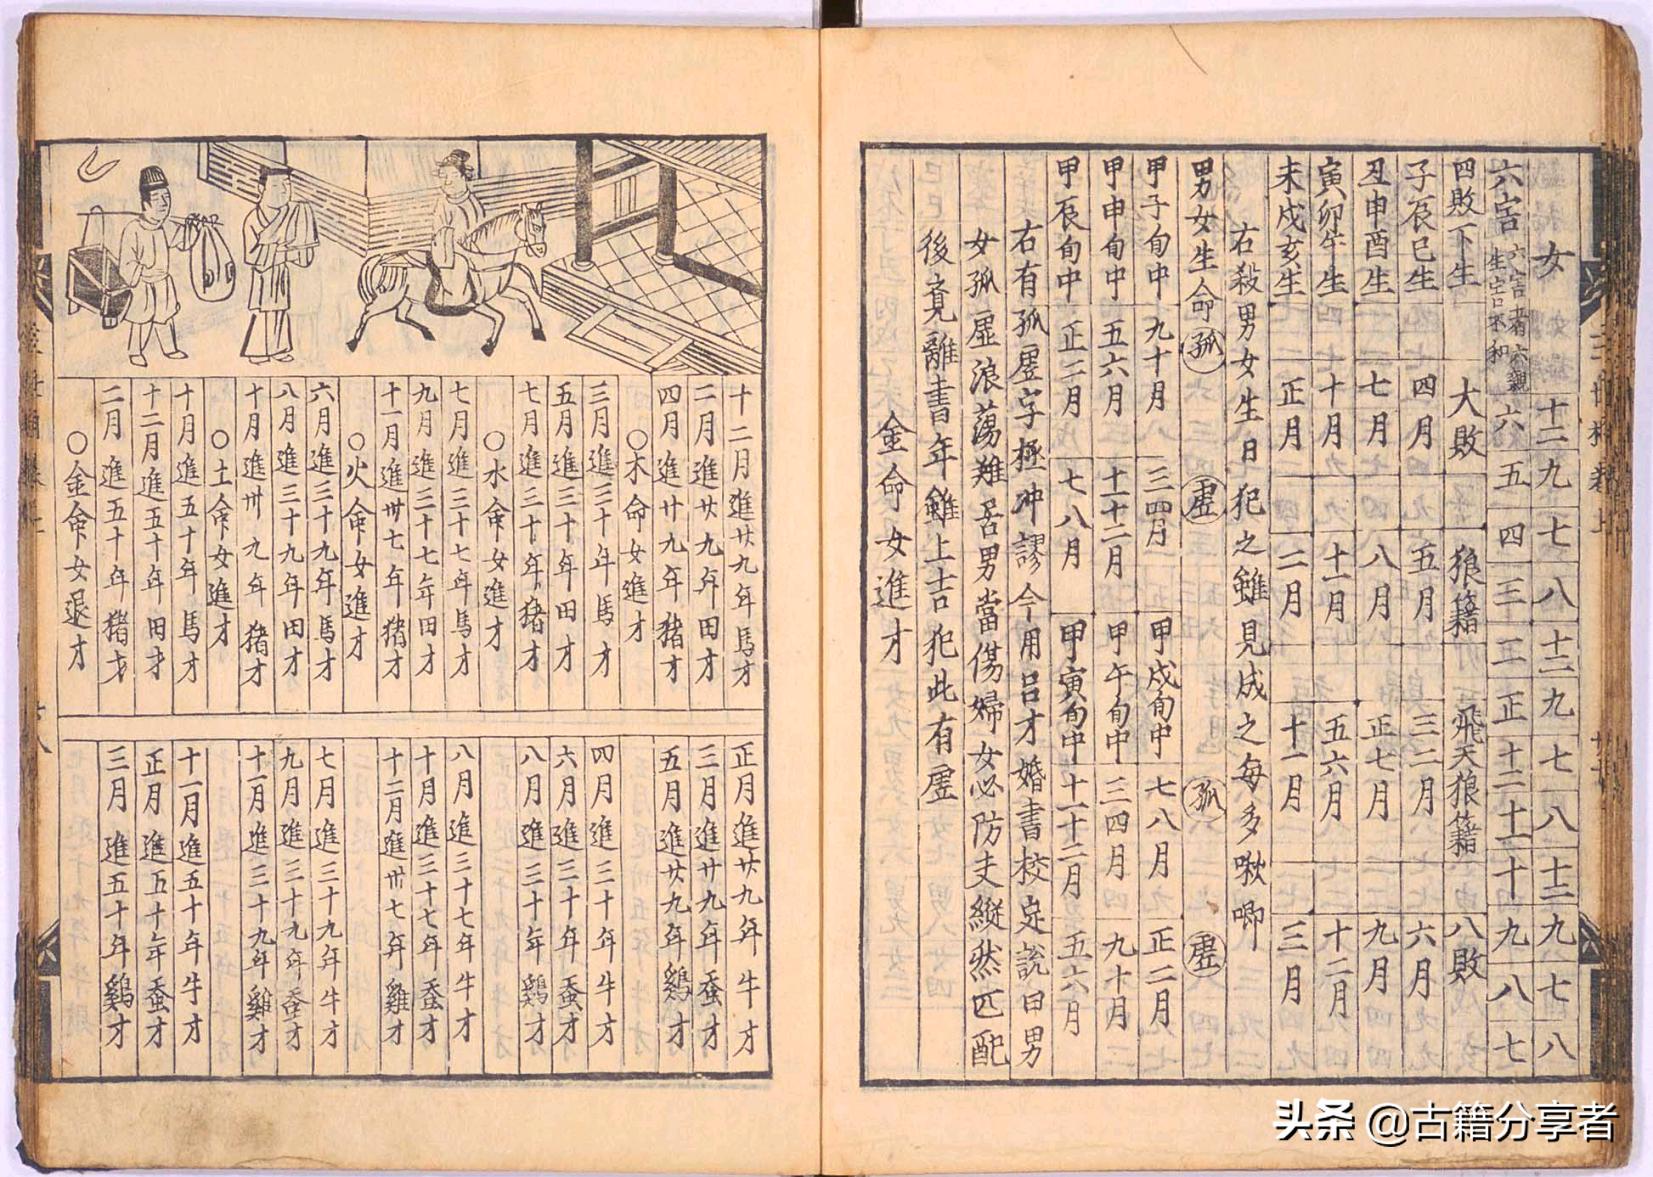 女 十二 九 七 八 十二 九 七 八 十二 九 七 八
六害 六害者六親生害不和 六 五 四 三 二 正 十二 十一 十 九 八 七
四敗下生 大敗 狼籍 飛天狼籍 八敗
子辰巳生 四月 五月 三二月 六月
丑申酉生 七月 八月 正七月 九月
寅卯午生 十月 十一月 五六月 十二月
未戌亥生 正月 二月 十一月 三月
右殺男女生日犯之雖見成之每多啾唧
男女生命 孤 虛 孤 虛
甲子旬中 九十月 三四月 甲戌旬中 七八月 正二月
甲申旬中 五六月 十十二月 甲午旬中 三四月 九十月
甲辰旬中 正二月 七八月 甲寅旬中 十一十二月 五六月
右有孤虛字極冲謬今用呂才婚書校定說曰男
女孤虛浪蕩難苦男當傷婦女必防丈縱然匹配
後竟離書年雖上吉犯此有虛
金命女進才
十二月進廿九年馬才 正月進廿九年牛才
二月進廿九年田才 三月進廿九年蚕才
四月進廿九年猪才 五月進廿九年鷄才
○木命女進才
三月進三十年馬才 四月進三十年牛才
五月進三十年田才 六月進三十年蚕才
七月進三十年猪才 八月進三十年鷄才
○水命女進才
七月進三十七年馬才 八月進三十七年牛才
九月進三十七年田才 十月進三十七年蚕才
十一月進卅七年猪才 十二月進卅七年雞才
○火命女進才
六月進三十九年馬才 七月進三十九年牛才
八月進三十九年田才 九月進三十九年蚕才
十月進卅九年猪才 十一月進三十九年雞才
○土命女進才
十月進五十年馬才 十一月進五十年牛才
十二月進五十年田才 正月進五十年蚕才
二月進五十年猪才 三月進五十年鷄才
○金命女退才
头条 @古籍分享者